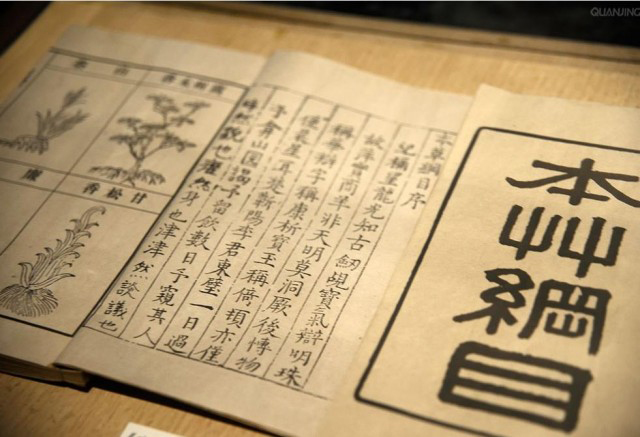 QUANJING
本艸綱目
本草綱目序
紀稱望龍光知古劍覘寶氣辯明珠
故萍實商羊非天明莫洞厥後博物
稱華辯字稱康析寶玉稱倚頓亦僅
僅晨星耳楚蘄陽李君東璧一日過
予弇山園謁予留飲數日予窺其人
睟然貌也癯然身也津津然談議也
甘松香